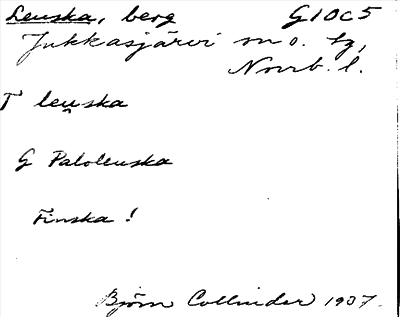 Leuska, berg G10c5
Jukkasjärvi sn o. tg,
Norrb. l.
T leu̯ska
G Paloleuska
Finska!
Björn Collinder 1937.